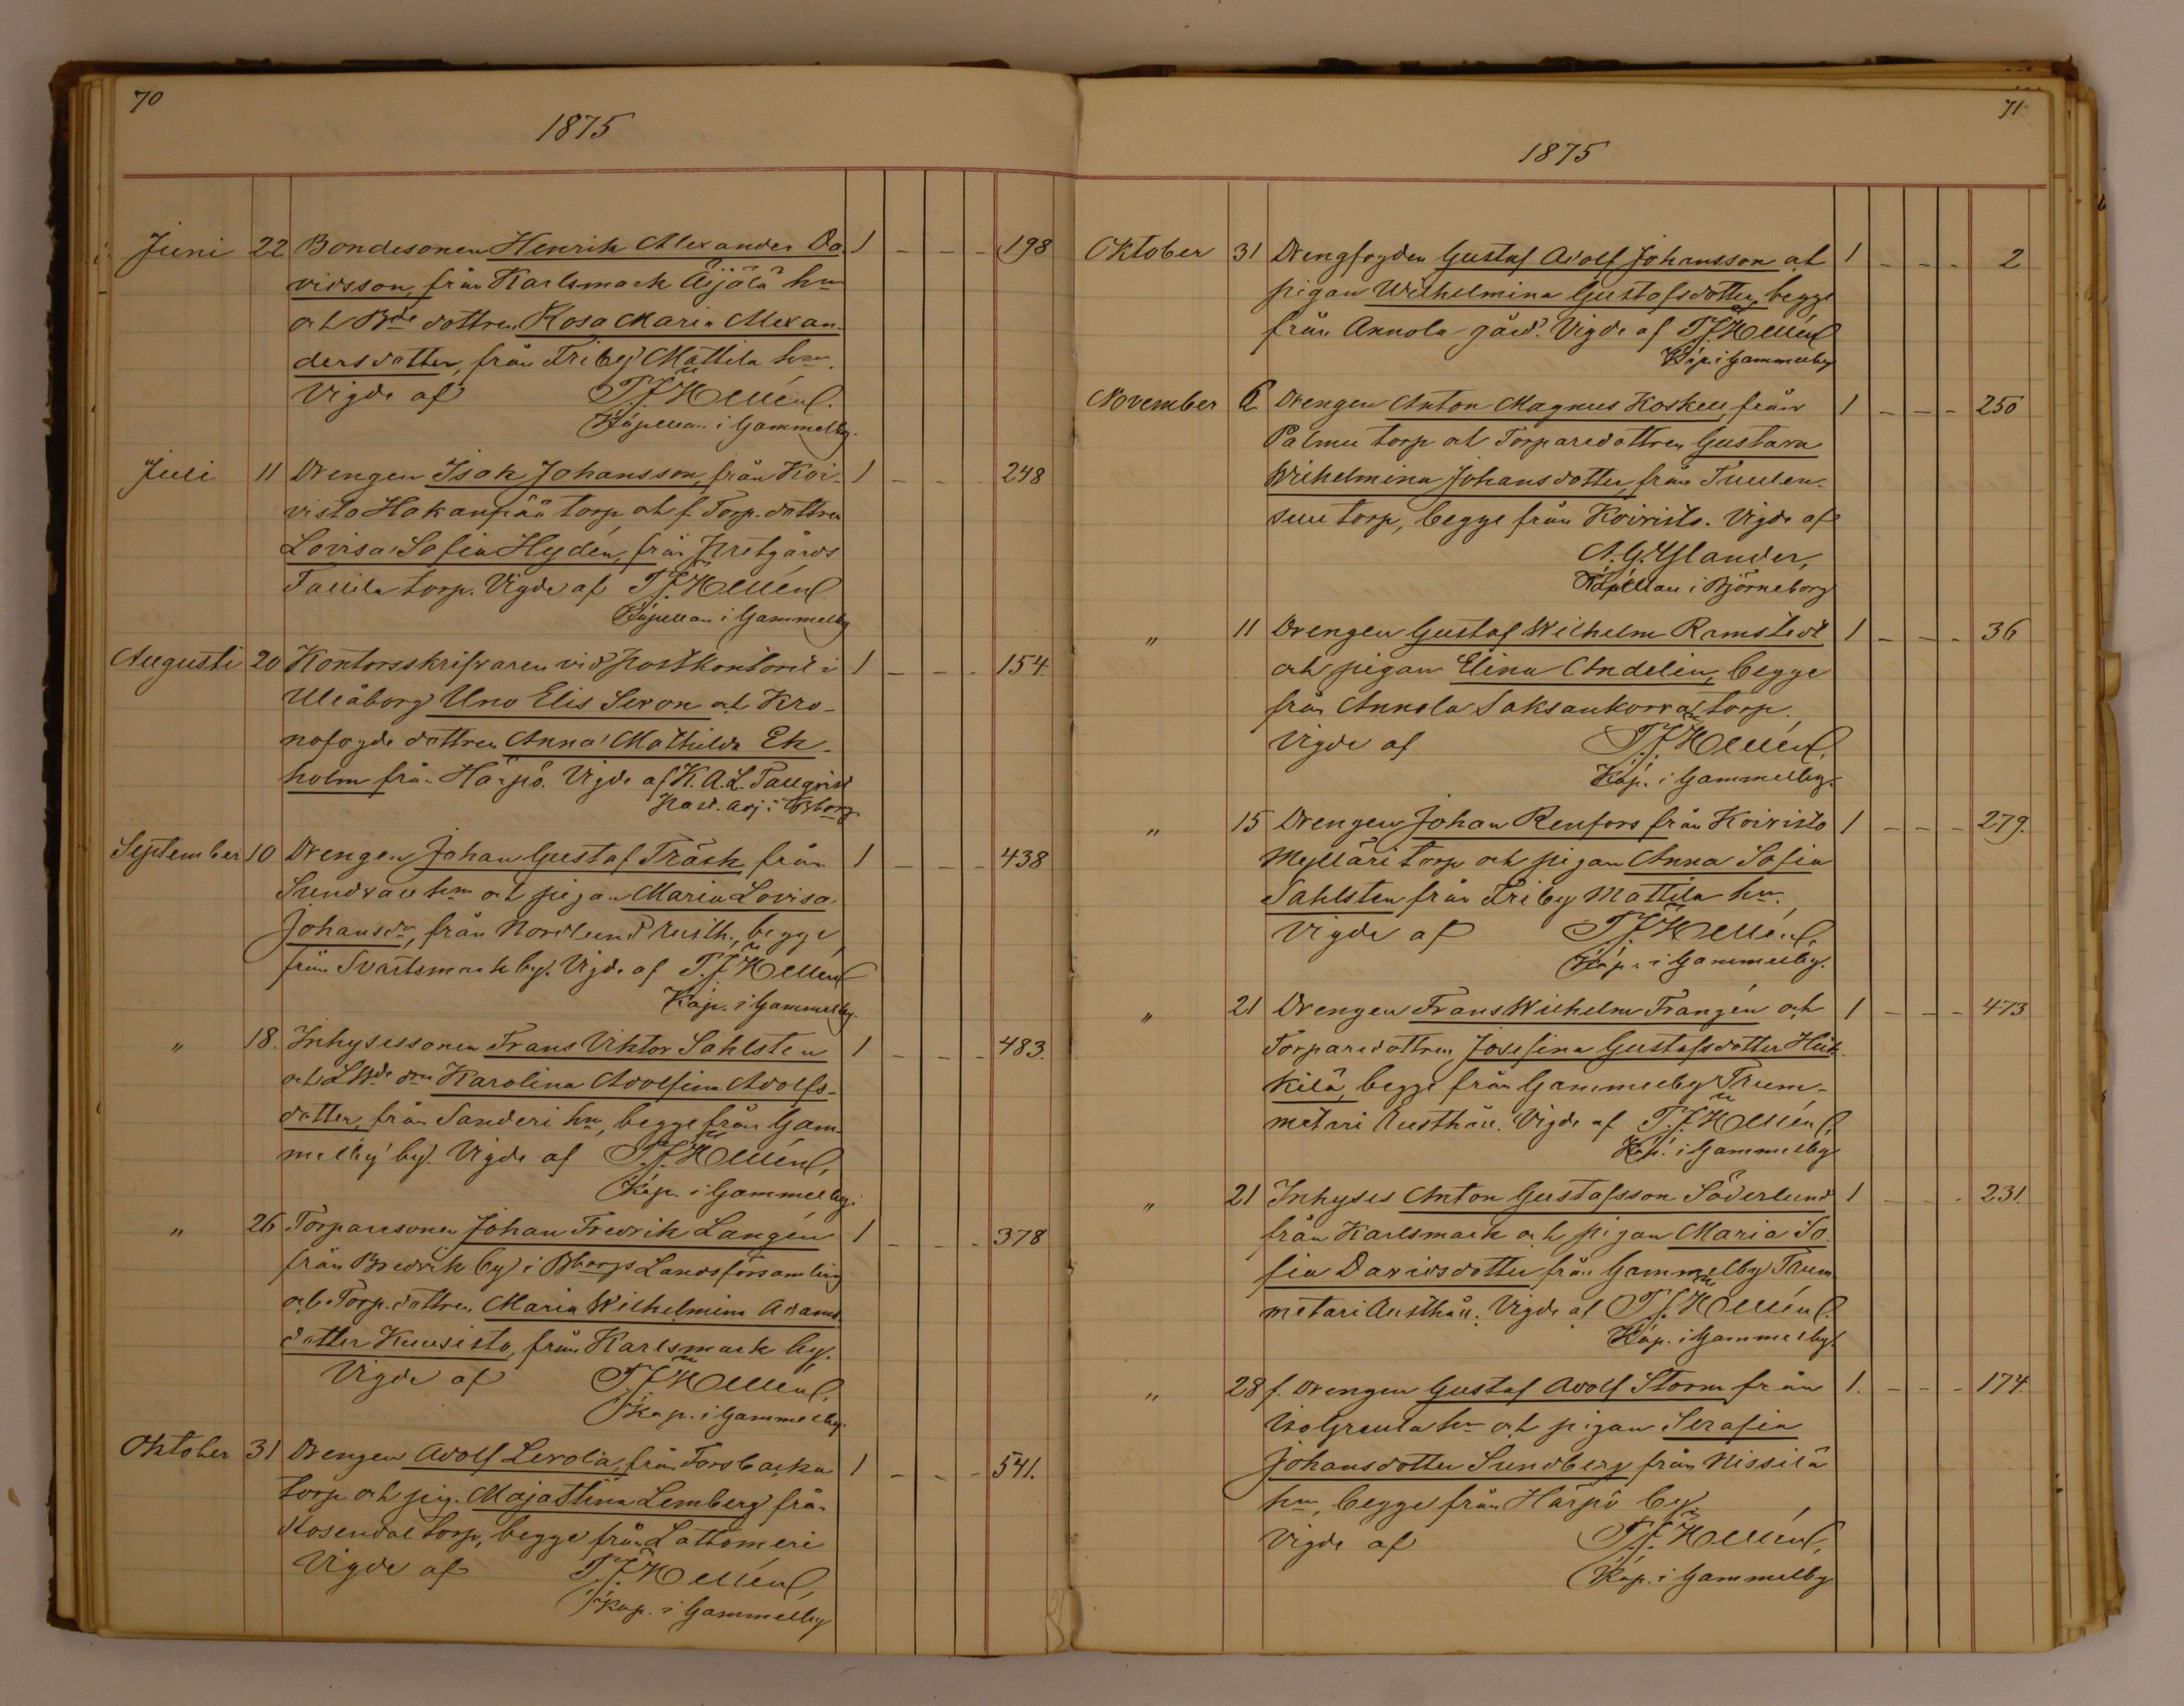 70
1875
Juni 22 Bondesonen Henrik Alexander Da- 1 - - - 198
vidsson, från Karlsmark Äijälä hmn
och Bde dottren Rosa Maria Alexan-
dersdotter, från Friby Mattila hmn.
Vigde af T. J. Hellén
Kapellan i Gammelby.
Juli 11 Drengen Isak Johansson, från Koi- 1 - - - 248
visto Hakanpää torp och f. Torp. dottren
Lovisa Sofia Hydén, från Prestgårds
Tallila torp. Vigde af T. J. Hellén
Kapellan i Gammelby
Augusti 20 Kontorsskrifvaren vid Postkontoret i 1 - - - 154.
Uleåborg Uno Elis Sevon och Kro-
nofogde dottren Anna Mathilda Ek-
holm från Härpö. Vigde af K. A. L. Tallqvist
Past. adj. i Bborg
September 10 Drengen Johan Gustaf Träsk från 1 - - - 438
Sundvall hmn och pigan Maria Lovisa
Johansdr, från Nordlund Rusth., begge
från Svartsmark by. Vigde af T. J. Hellén
Kap. i Gammelby.
" 18. Inhysessonen Frans Viktor Sahlsten 1 - - - 483.
och Karolina Adolfina Adolfs-
dotter, från Sanderi hmn, begge från Gam-
melby by. Vigde af T. J. Hellén,
Kap. i Gammelby.
" 26 Torparesonen Johan Fredrik Langén 1 - - - 378
från Bredvik by i Bborgs Landsförsamling
och Torp. dottren Maria Wilhelmina Adams-
dotter Kuusisto, från Karlsmark by.
Vigde af T. J. Hellén,
Kap. i Gammelby.
Oktober 31 Drengen Adolf Levola, från Forsbacka 1 - - - 541.
torp och pig. Maja Stina Lemberg från
Rosendal torp, begge från Lattomeri
Vigde af T. J. Hellén,
Kap. i Gammelby
71
1875
Oktober 31 Drengfogden Gustaf Adolf Johansson och 1 - - - 2
pigan Wilhelmina Gustafsdotter, begge
från Annola gård. Vigde af T. J. Hellén
Kap. i Gammelby
November 6 Drengen Anton Magnus Koskell, från 1 - - - 250
Palmu torp och Torparedottren Gustava
Wilhelmina Johansdotter, från Tuulen-
suu torp, begge från Koivisto. Vigde af
A. G. Ylander,
Kapellan i Björneborg
" 11 Drengen Gustaf Wilhelm Ramstedt 1 - - - 36
och pigan Elina Andelin, begge
från Annola Saksankorva torp.
Vigde af T. J. Hellén,
Kap. i Gammelby.
" 15 Drengen Johan Renfors från Koivisto 1 - - - 279.
Mylläri torp och pigan Anna Sofia
Sahlsten från Friby Mattila hmn.
Vigde af T. J. Hellén,
Kap. i Gammelby.
" 21 Drengen Frans Wilhelm Frangén och 1 - - - 473
Torparedottren Josefina Gustafsdotter Heik-
kilä, begge från Gammelby Trum-
metari Rusthåll. Vigde af T. J. Hellén,
Kap. i Gammelby
" 21 Inhyses Anton Gustafsson Söderlund 1 - - - 231.
från Karlsmark och pigan Maria So-
fia Davidsdotter från Gammelby Trum-
metari Rusthåll. Vigde af T. J. Hellén.
Kap. i Gammelby.
" 28 f. Drengen Gustaf Adolf Storm från 1. - - - 174.
Isogreula hmn och pigan Serafia
Johansdotter Sundberg från Nissilä
hmn, begge från Härpö by.
Vigde af T. J. Hellén,
Kap. i Gammelby